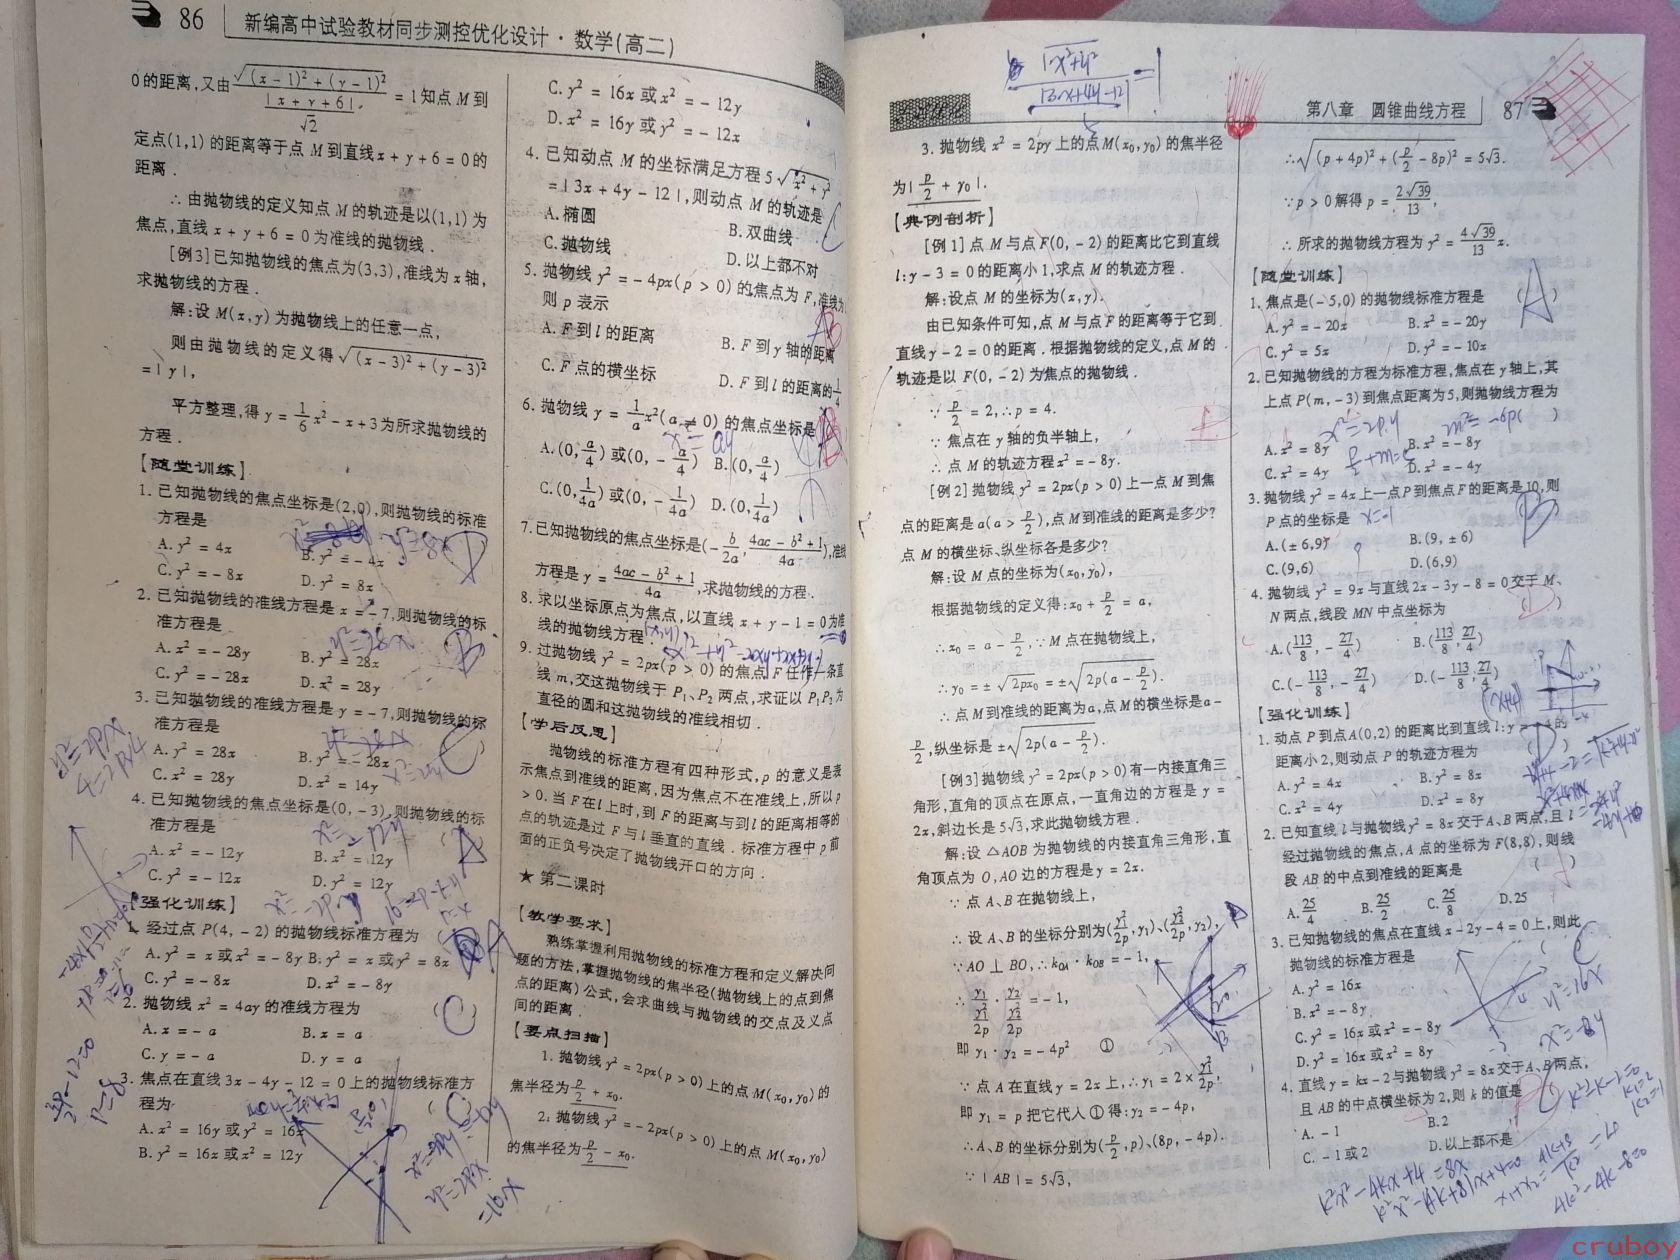 86 新编高中试验教材同步测控优化设计·数学(高二)
0的距离,又由 √((x-1)²+(y-1)²) / (|x+y+6|/√2) = 1知点 M 到
定点(1,1)的距离等于点 M 到直线 x + y + 6 = 0的
距离.
∴由抛物线的定义知点 M 的轨迹是以(1,1)为
焦点,直线 x + y + 6 = 0为准线的抛物线.
[例3]已知抛物线的焦点为(3,3),准线为 x 轴,
求抛物线的方程.
解:设 M(x,y)为抛物线上的任意一点,
则由抛物线的定义得√((x-3)²+(y-3)²)
= |y|,
平方整理,得 y = 1/6 x² - x + 3为所求抛物线的
方程.
【随堂训练】
1. 已知抛物线的焦点坐标是(2,0),则抛物线的标准
方程是
A. y² = 4x B. y² = - 4x
C. y² = - 8x D. y² = 8x
2. 已知抛物线的准线方程是 x = - 7,则抛物线的标
准方程是
A. x² = - 28y B. y² = 28x
C. y² = - 28x D. x² = 28y
3. 已知抛物线的准线方程是 y = - 7,则抛物线的标
准方程是
A. y² = 28x B. y² = - 28x
C. x² = 28y D. x² = 14y
4. 已知抛物线的焦点坐标是(0, - 3),则抛物线的标
准方程是
A. x² = - 12y B. x² = 12y
C. y² = - 12x D. y² = 12y
【强化训练】
1. 经过点 P(4, - 2)的抛物线标准方程为
A. y² = x 或 x² = - 8y B. y² = x 或 y² = 8x
C. y² = - 8x D. x² = - 8y
2. 抛物线 x² = 4ay 的准线方程为
A. x = - a B. x = a
C. y = - a D. y = a
3. 焦点在直线 3x - 4y - 12 = 0上的抛物线标准方
程为
A. x² = 16y 或 y² = 16x
B. y² = 16x 或 x² = 12y
C. y² = 16x 或 x² = - 12y
D. x² = 16y 或 y² = - 12x
4. 已知动点 M 的坐标满足方程 5√(x²+y²)
= |3x + 4y - 12|,则动点 M 的轨迹是
A. 椭圆 B. 双曲线
C. 抛物线 D. 以上都不对
5. 抛物线 y² = - 4px(p > 0)的焦点为 F,准线为
则 p 表示
A. F 到 l 的距离 B. F 到 y 轴的距离
C. F 点的横坐标 D. F 到 l 的距离的1/4
6. 抛物线 y = 1/a x²(a ≠ 0)的焦点坐标是
A. (0, a/4)或(0, - a/4) B. (0, a/4)
C. (0, 1/4a)或(0, - 1/4a) D. (0, 1/4a)
7. 已知抛物线的焦点坐标是(- b/2a, (4ac - b² + 1)/4a),准线
方程是 y = (4ac - b² + 1)/4a,求抛物线的方程.
8. 求以坐标原点为焦点,以直线 x + y - 1 = 0为准
线的抛物线方程.
9. 过抛物线 y² = 2px(p > 0)的焦点 F 任作一条直
线 m,交这抛物线于 P₁、P₂ 两点,求证以 P₁P₂ 为
直径的圆和这抛物线的准线相切.
【学后反思】
抛物线的标准方程有四种形式,p 的意义是表
示焦点到准线的距离,因为焦点不在准线上,所以 p
> 0.当 F 在 l 上时,到 F 的距离与到 l 的距离相等的
点的轨迹是过 F 与 l 垂直的直线.标准方程中 p 前
面的正负号决定了抛物线开口的方向.
★ 第二课时
【教学要求】
熟练掌握利用抛物线的标准方程和定义解决问
题的方法,掌握抛物线的焦半径(抛物线上的点到焦
点的距离)公式,会求曲线与抛物线的交点及义点
间的距离.
【要点扫描】
1. 抛物线 y² = 2px(p > 0)上的点 M(x₀,y₀)的
焦半径为 p/2 + x₀.
2. 抛物线 y² = - 2px(p > 0)上的点 M(x₀,y₀)
的焦半径为 p/2 - x₀.
第八章 圆锥曲线方程 87
3. 抛物线 x² = 2py 上的点 M(x₀,y₀)的焦半径
为|p/2 + y₀|.
【典例剖析】
[例1]点 M 与点 F(0, - 2)的距离比它到直线
l:y - 3 = 0的距离小1,求点 M 的轨迹方程.
解:设点 M 的坐标为(x,y).
由已知条件可知,点 M 与点 F 的距离等于它到
直线 y - 2 = 0的距离.根据抛物线的定义,点 M 的
轨迹是以 F(0, - 2)为焦点的抛物线.
∵ p/2 = 2,∴p = 4.
∵焦点在 y 轴的负半轴上,
∴点 M 的轨迹方程 x² = - 8y.
[例2]抛物线 y² = 2px(p > 0)上一点 M 到焦
点的距离是 a(a > p/2),点 M 到准线的距离是多少?
点 M 的横坐标、纵坐标各是多少?
解:设 M 点的坐标为(x₀,y₀),
根据抛物线的定义得:x₀ + p/2 = a,
∴x₀ = a - p/2,∵M 点在抛物线上,
∴y₀ = ±√(2px₀) = ±√(2p(a - p/2)).
∴点 M 到准线的距离为 a,点 M 的横坐标是 a -
p/2,纵坐标是 ±√(2p(a - p/2)).
[例3]抛物线 y² = 2px(p > 0)有一内接直角三
角形,直角的顶点在原点,一直角边的方程是 y =
2x,斜边长是 5√3,求此抛物线方程.
解:设△AOB 为抛物线的内接直角三角形,直
角顶点为 O,AO 边的方程是 y = 2x.
∵点 A、B 在抛物线上,
∴设 A、B 的坐标分别为(y₁²/2p, y₁)、(y₂²/2p, y₂),
∵AO⊥BO,∴k_OA · k_OB = - 1,
∴ y₁/(y₁²/2p) · y₂/(y₂²/2p) = - 1,
即 y₁·y₂ = - 4p² ①
∵点 A 在直线 y = 2x 上,∴y₁ = 2 × y₁²/2p,
即 y₁ = p 把它代人①得:y₂ = - 4p,
∴A、B 的坐标分别为(p/2,p)、(8p, - 4p).
∵|AB| = 5√3,
∴√((p + 4p)² + (p/2 - 8p)²) = 5√3.
∵p > 0解得 p = 2√39/13,
∴所求的抛物线方程为 y² = 4√39/13 x.
【随堂训练】
1. 焦点是(- 5,0)的抛物线标准方程是 ( )
A. y² = - 20x B. x² = - 20y
C. y² = 5x D. y² = - 10x
2. 已知抛物线的方程为标准方程,焦点在 y 轴上,其
上点 P(m, - 3)到焦点距离为5,则抛物线方程为
( )
A. x² = 8y B. x² = - 8y
C. x² = 4y D. x² = - 4y
3. 抛物线 y² = 4x 上一点 P 到焦点 F 的距离是10,则
P 点的坐标是
A. (± 6,9) B. (9, ± 6)
C. (9,6) D. (6,9)
4. 抛物线 y² = 9x 与直线 2x - 3y - 8 = 0交于 M、
N 两点,线段 MN 中点坐标为
A. (113/8, - 27/4) B. (113/8, 27/4)
C. (- 113/8, - 27/4) D. (- 113/8, 27/4)
【强化训练】
1. 动点 P 到点 A(0,2)的距离比到直线 l:y = - 4的
距离小2,则动点 P 的轨迹方程为
A. y² = 4x B. y² = 8x
C. x² = 4y D. x² = 8y
2. 已知直线 l 与抛物线 y² = 8x 交于 A、B 两点,且 l
经过抛物线的焦点,A 点的坐标为 F(8,8),则线
段 AB 的中点到准线的距离是 ( )
A. 25/4 B. 25/2 C. 25/8 D. 25
3. 已知抛物线的焦点在直线 x - 2y - 4 = 0上,则此
抛物线的标准方程是
A. y² = 16x
B. x² = - 8y
C. y² = 16x 或 x² = - 8y
D. y² = 16x 或 x² = 8y
4. 直线 y = kx - 2与抛物线 y² = 8x 交于 A、B 两点,
且 AB 的中点横坐标为2,则 k 的值是
A. - 1 B. 2
C. - 1或2 D. 以上都不是
k²x² - 4kx + 4 = 8x
cruboy